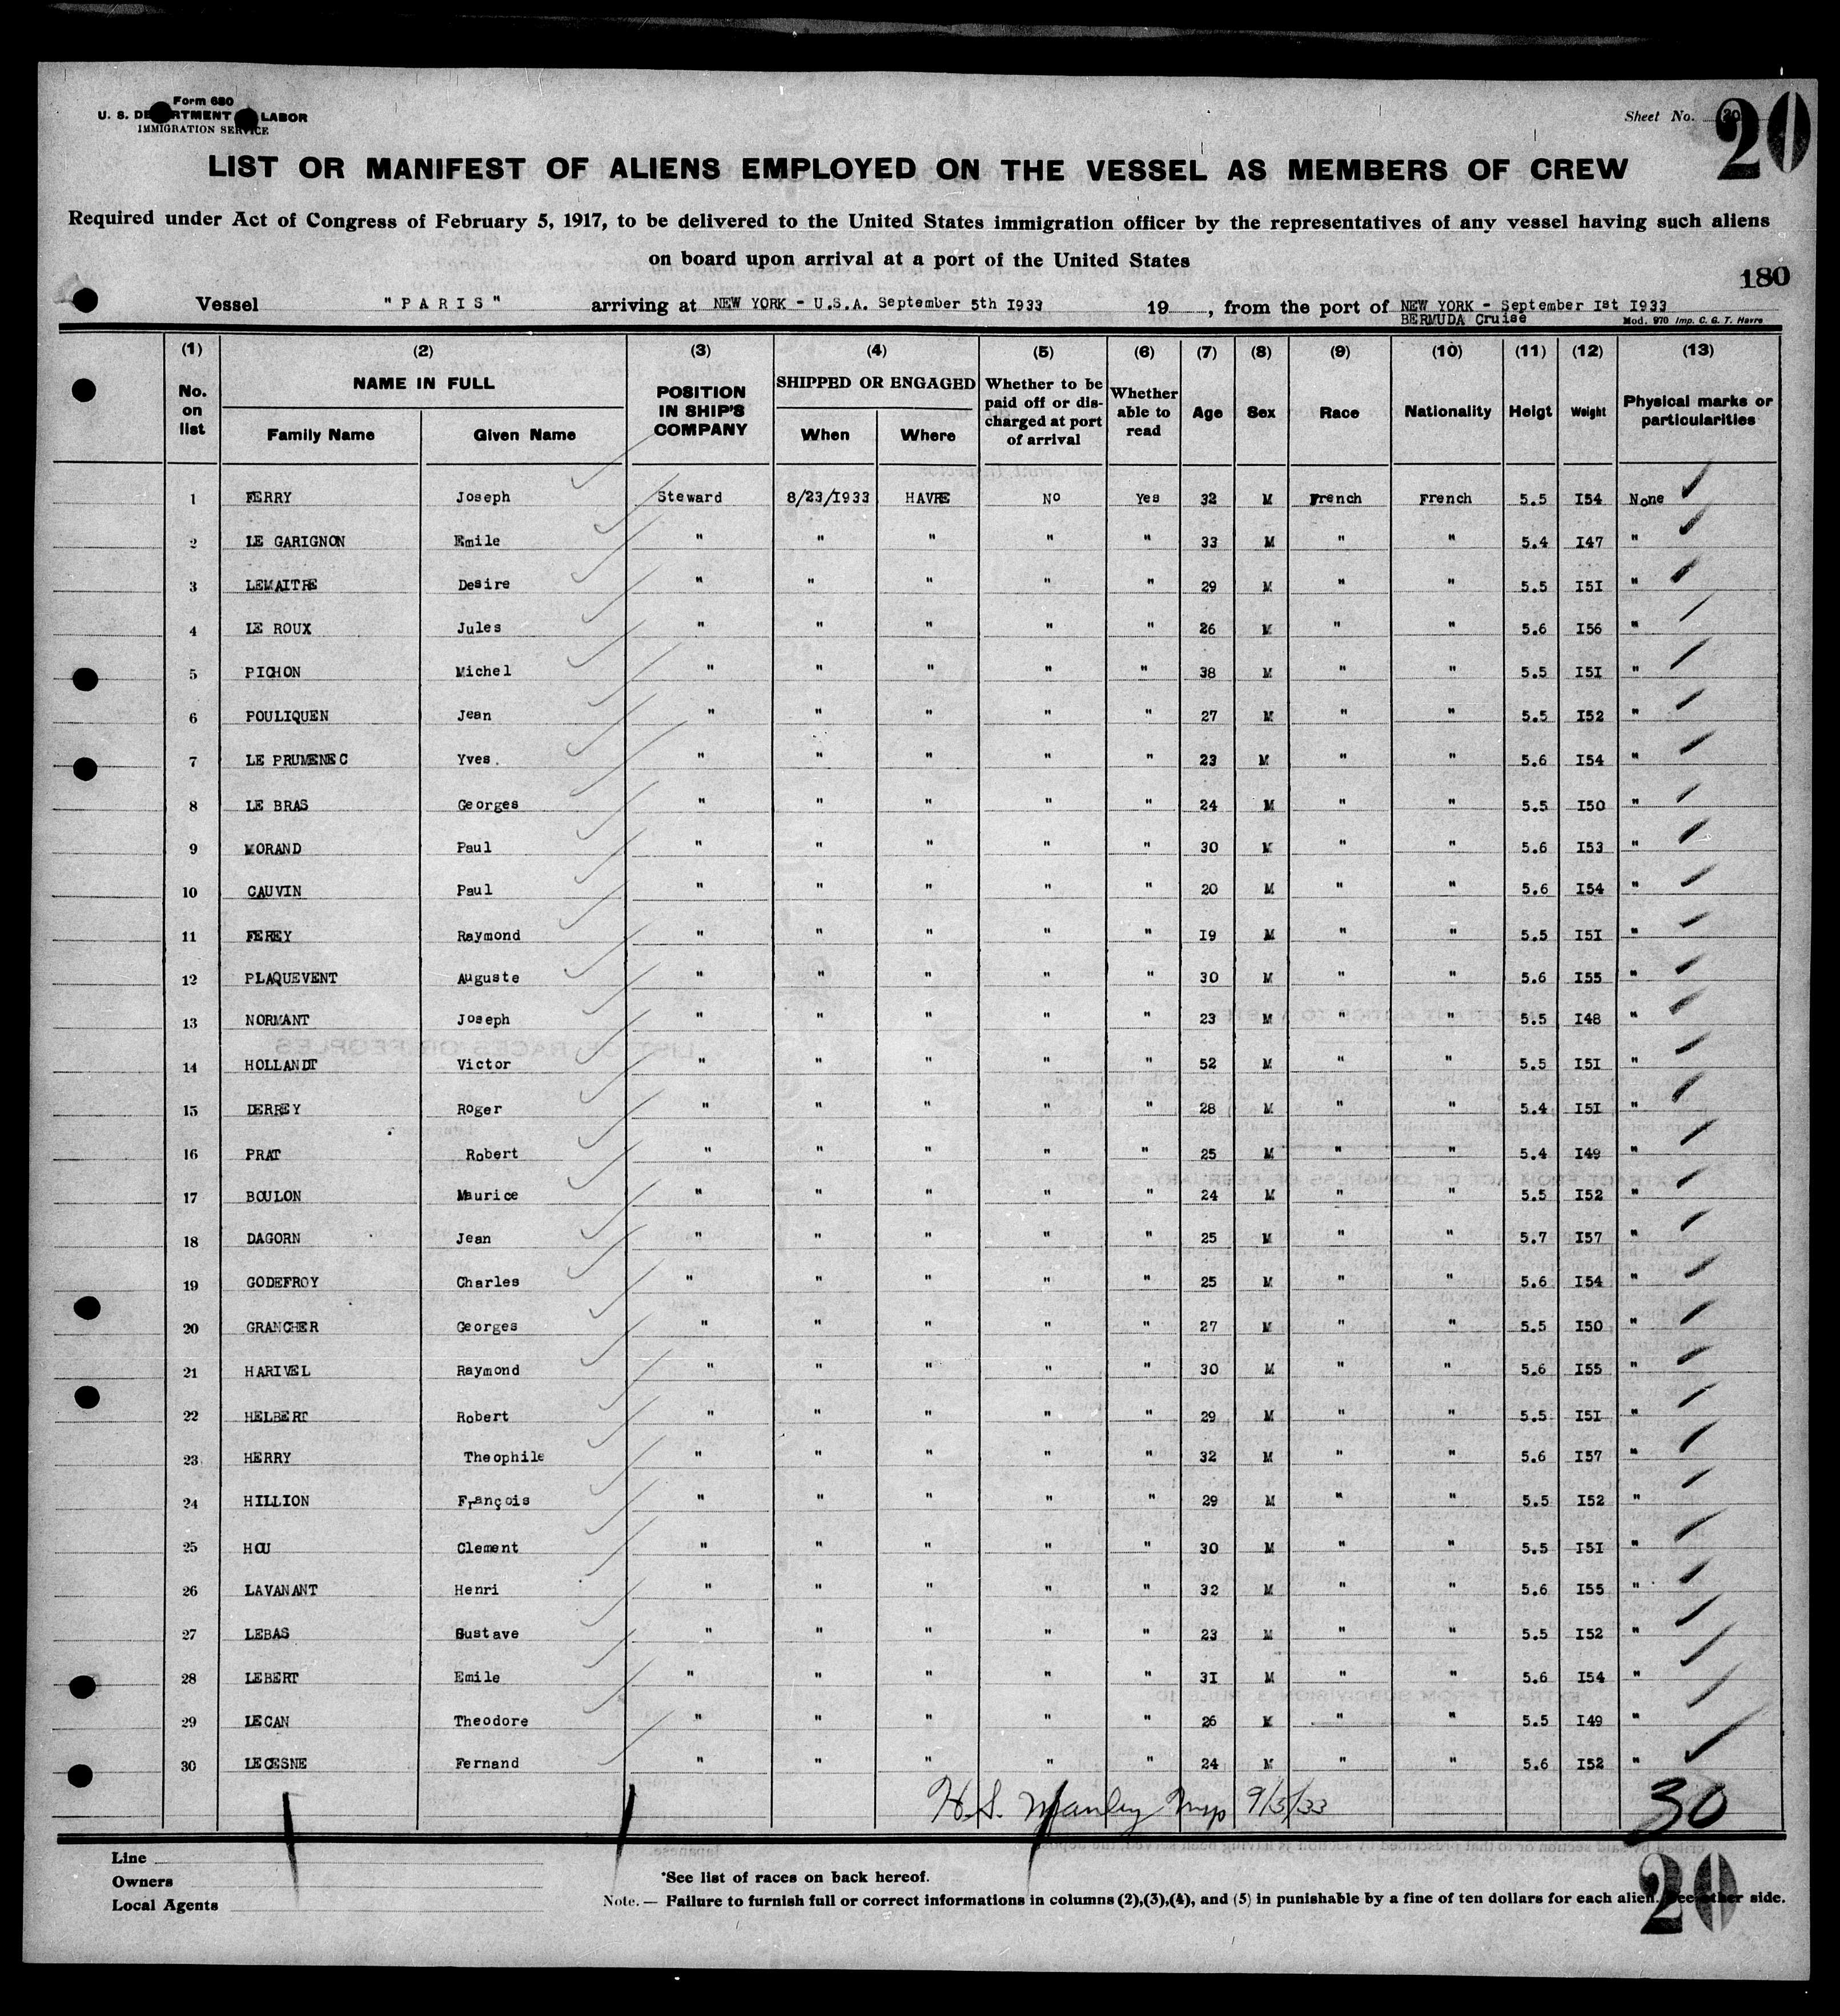 Form 680
U. S. DEPARTMENT OF LABOR
IMMIGRATION SERVICE
Sheet No. 20
20
LIST OR MANIFEST OF ALIENS EMPLOYED ON THE VESSEL AS MEMBERS OF CREW
Required under Act of Congress of February 5, 1917, to be delivered to the United States immigration officer by the representatives of any vessel having such aliens
on board upon arrival at a port of the United States
180
Vessel "PARIS" arriving at NEW YORK - U.S.A. September 5th I933 19 , from the port of NEW YORK - September Ist I933
BERMUDA Cruise
Mod. 970 Imp. C. G. T. Havre
(1) (2) (3) (4) (5) (6) (7) (8) (9) (10) (11) (12) (13)
No. on list NAME IN FULL Family Name Given Name POSITION IN SHIP'S COMPANY SHIPPED OR ENGAGED When Where Whether to be paid off or discharged at port of arrival Whether able to read Age Sex Race Nationality Heigt Weight Physical marks or particularities
1 FERRY Joseph Steward 8/23/I933 HAVRE No Yes 32 M French French 5.5 I54 None
2 LE GARIGNON Emile " " " " " 33 M " " 5.4 I47 "
3 LEMAITRE Desire " " " " " 29 M " " 5.5 I5I "
4 LE ROUX Jules " " " " " 26 M " " 5.6 I56 "
5 PICHON Michel " " " " " 38 M " " 5.5 I5I "
6 POULIQUEN Jean " " " " " 27 M " " 5.5 I52 "
7 LE PRUMENEC Yves. " " " " " 23 M " " 5.6 I54 "
8 LE BRAS Georges " " " " " 24 M " " 5.5 I50 "
9 MORAND Paul " " " " " 30 M " " 5.6 I53 "
10 CAUVIN Paul " " " " " 20 M " " 5.6 I54 "
11 FEREY Raymond " " " " " I9 M " " 5.5 I5I "
12 PLAQUEVENT Auguste " " " " " 30 M " " 5.6 I55 "
13 NORMANT Joseph " " " " " 23 M " " 5.5 I48 "
14 HOLLANDT Victor " " " " " 52 M " " 5.5 I5I "
15 DERREY Roger " " " " " 28 M " " 5.4 I5I "
16 PRAT Robert " " " " " 25 M " " 5.4 I49 "
17 BOULON Maurice " " " " " 24 M " " 5.5 I52 "
18 DAGORN Jean " " " " " 25 M " " 5.7 I57 "
19 GODEFROY Charles " " " " " 25 M " " 5.6 I54 "
20 GRANCHER Georges " " " " " 27 M " " 5.5 I50 "
21 HARIVEL Raymond " " " " " 30 M " " 5.6 I55 "
22 HELBERT Robert " " " " " 29 M " " 5.5 I5I "
23 HERRY Theophile " " " " " 32 M " " 5.6 I57 "
24 HILLION François " " " " " 29 M " " 5.5 I52 "
25 HOU Clement " " " " " 30 M " " 5.5 I5I "
26 LAVANANT Henri " " " " " 32 M " " 5.6 I55 "
27 LEBAS Gustave " " " " " 23 M " " 5.5 I52 "
28 LEBERT Emile " " " " " 3I M " " 5.6 I54 "
29 LECAN Theodore " " " " " 26 M " " 5.5 I49 "
30 LECESNE Fernand " " " " " 24 M " " 5.6 I52 "
H. S. Manley Insp 9/5/33 30
Line
Owners
Local Agents
*See list of races on back hereof.
Note.— Failure to furnish full or correct informations in columns (2),(3),(4), and (5) in punishable by a fine of ten dollars for each alien. See other side.
20